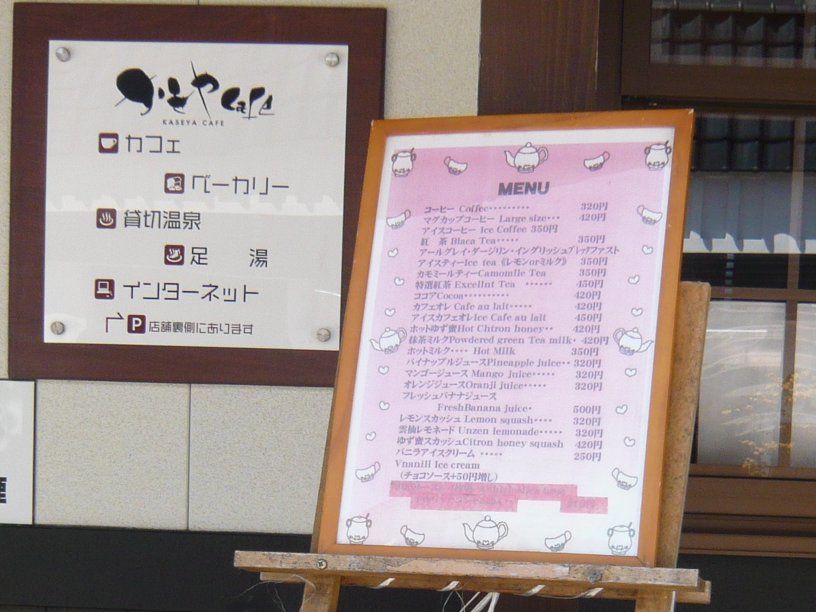 かせやcafe
KASEYA CAFE
カフェ
ベーカリー
貸切温泉
足 湯
インターネット
P 店舗裏側にあります
MENU
コーヒー Coffee・・・・・・・・・ 320円
マグカップコーヒー Large size・・・ 420円
アイスコーヒー Ice Coffee 350円
紅 茶 Blaca Tea・・・・・ 350円
アールグレイ・ダージリン・イングリッシュブレックファスト
アイスティーIce tea (レモンorミルク) 350円
カモミールティーCamomile Tea 350円
特選紅茶 Excellnt Tea ・・・・・・ 450円
ココアCocoa・・・・・・・・・・ 420円
カフェオレ Cafe au lait・・・・・ 420円
アイスカフェオレIce Cafe au lait 450円
ホットゆず蜜Hot Chtron honey・・ 420円
抹茶ミルクPowdered green Tea milk・ 420円
ホットミルク・・・・ Hot Milk 350円
パイナップルジュースPineapple juice・・ 320円
マンゴージュース Mango juice・・・・・ 320円
オレンジジュースOranji juice・・・・・ 320円
フレッシュバナナジュース
FreshBanana juice・ 500円
レモンスカッシュ Lemon squash・・・・ 320円
雲仙レモネード Unzen lemonade・・・・・ 320円
ゆず蜜スカッシュCitron honey squash 420円
バニラアイスクリーム ・・・・・ 250円
Vnanill Ice cream
(チョコソース+50円増し)